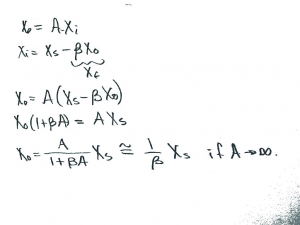 Xo = A.Xi
Xi = Xs - βXo
Xf
Xo = A(Xs - βXo)
Xo(1+βA) = AXs
Xo = A/(1+βA) Xs ≅ 1/β Xs if A → ∞.